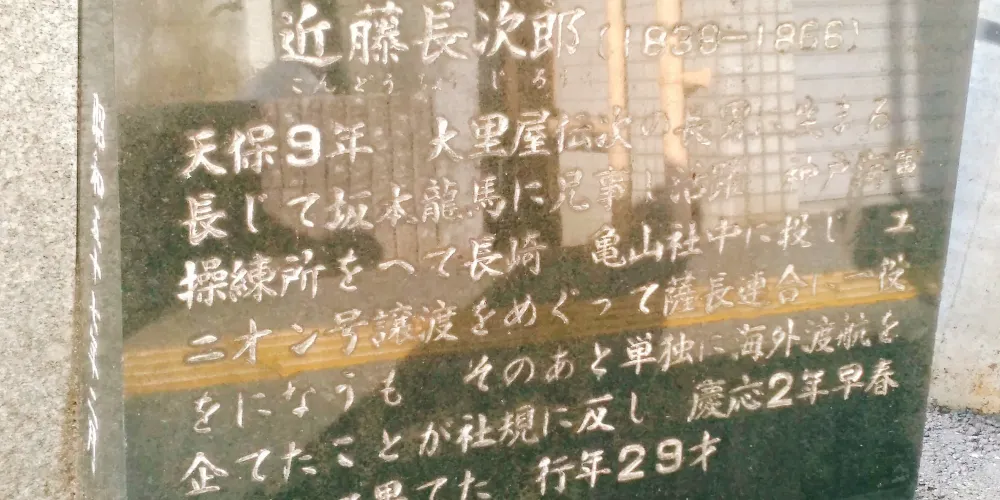 近藤長次郎(1838-1866)
こんどうな じろ
天保9年 大里屋伝次の長男に生まる
長じて坂本龍馬に兄事し活躍 神戸海軍
操練所をへて長崎 亀山社中に投じ ユ
ニオン号譲渡をめぐって薩長連合に一役
をになうも そのあと単独に海外渡航を
企てたことが社規に反し 慶応2年早春
果てた 行年29才